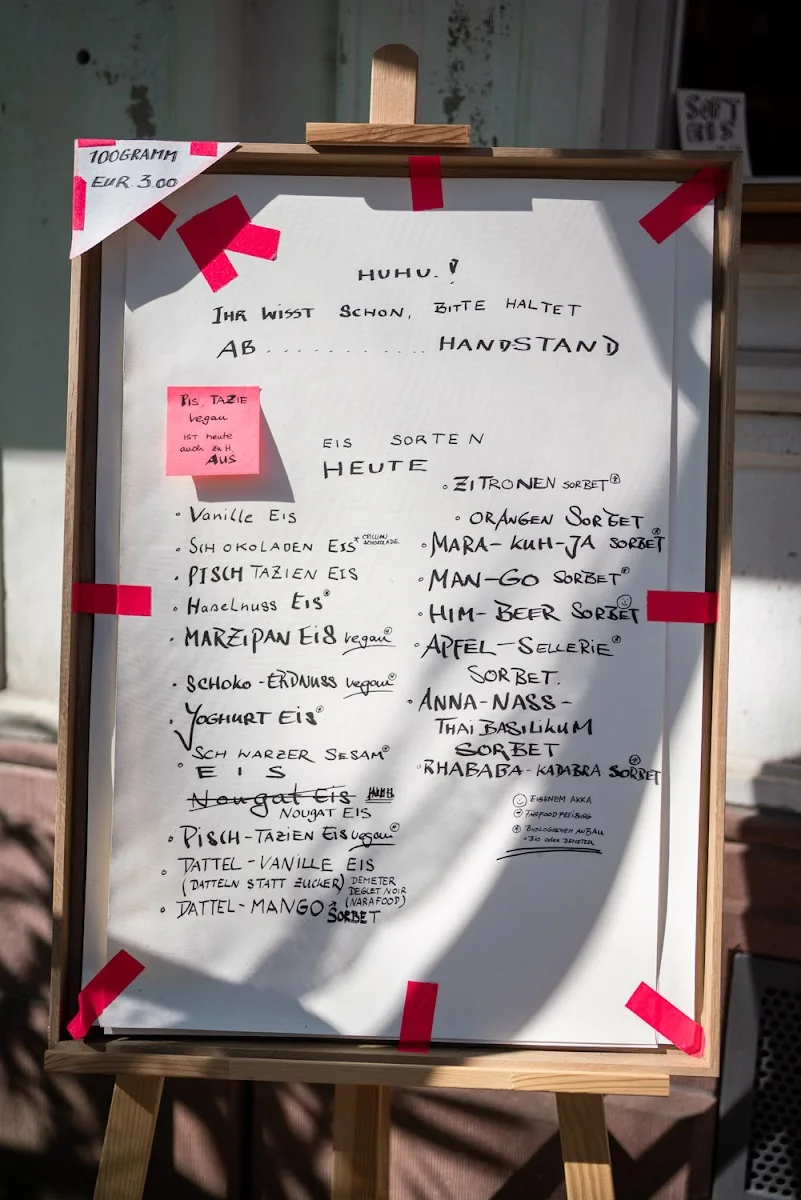 100GRAMM
EUR 3.00
SOFT
EIS
HUHU.!
IHR WISST SCHON, BITTE HALTET
AB ............... HANDSTAND
PIS, TAZIE
vegan
IST heute
auch
AUS
EIS SORTEN
HEUTE
• Vanille EIS
• SCHOKOLADEN EIS*
• PISCHTAZIEN EIS
• Haselnuss EIS*
• MARZIPAN EIS vegan*
• SCHOKO-ERDNUSS vegan*
• YOGHURT EIS*
• SCHWARZER SESAM*
EIS
Nougat EIS
NOUGAT EIS
• PISCH-TAZIEN EIS vegan*
• DATTEL-VANILLE EIS
(DATTELN STATT ZUCKER) DEMETER
DEGLET NOIR
(NARAFOOD)
• DATTEL-MANGO SORBET
• ZITRONEN SORBET*
• ORANGEN SORBET
• MARA-KUH-JA SORBET*
• MAN-GO SORBET*
• HIM-BEER SORBET☺
• APFEL-SELLERIE*
SORBET.
• ANNA-NASS-
THAI BASILIKUM
SORBET
• RHABABA-KADABRA SORBET☺
☺ EIGENEM AKKA
FAIRFOOD FREIBURG
* BIOLOGISCHEM ANBAU
• BIO ODER DEMETER